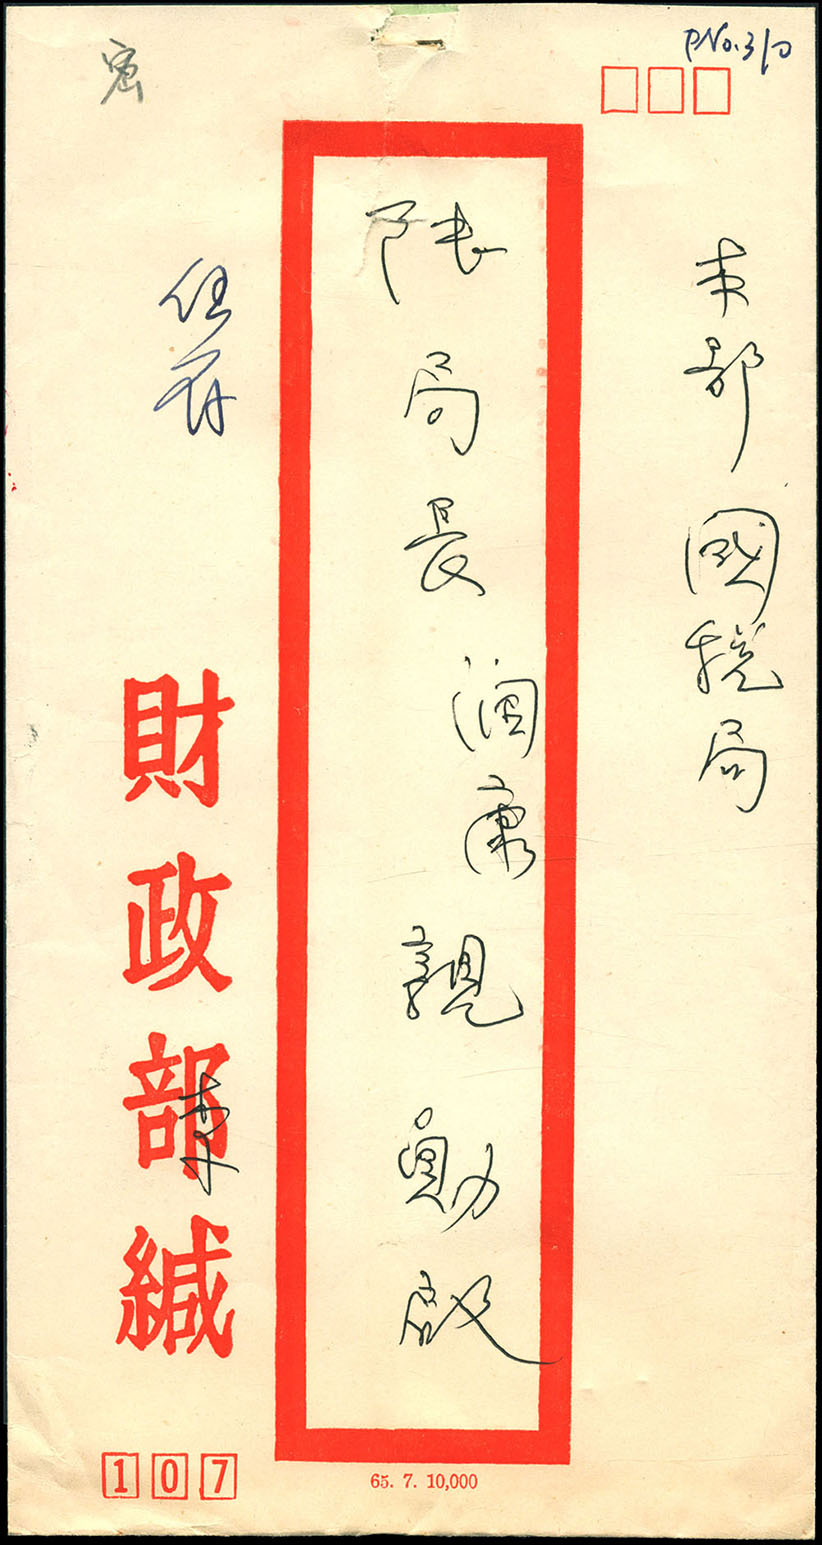 PNo.310
本部國稅局
陸局長潤康親勛啟
密
財政部緘
李
107
65. 7. 10,000